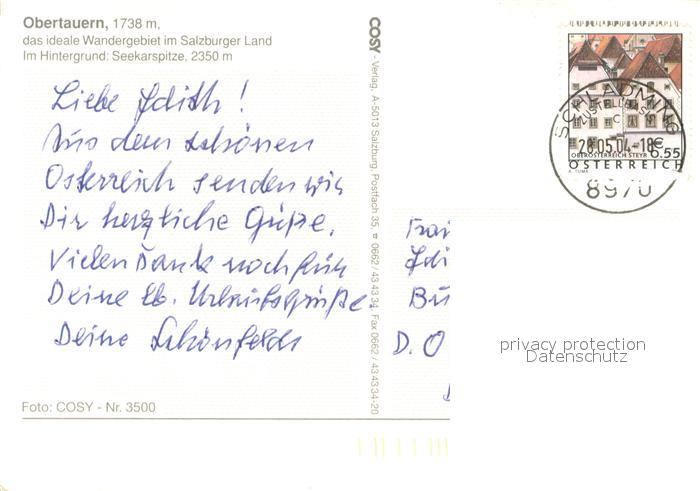 Obertauern, 1738 m,
das ideale Wandergebiet im Salzburger Land
Im Hintergrund: Seekarspitze, 2350 m
Liebe Edith!
Aus dem schönen
Österreich senden wir
Dir herzliche Grüße.
Vielen Dank noch für
Deine lb. Urlaubsgrüße.
Deine Schönfelds
Foto: COSY - Nr. 3500
COSY - Verlag, A-5013 Salzburg, Postfach 35, ☎ 0662 / 43 43 34, Fax 0662 / 43 43 34-20
SCHLADMING
ZUSTELLBASIS
C
28.05.04 - 18
8970
€ 0.55
OBERÖSTERREICH STEYR
ÖSTERREICH
A. TUMA
Edi
D. O
privacy protection
Datenschutz